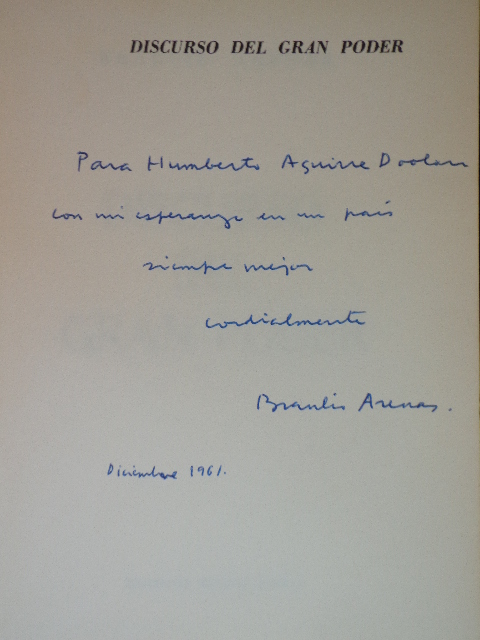 DISCURSO DEL GRAN PODER
Para Humberto Aguirre Doolan
con mi esperanza en un país
siempre mejor
cordialmente
Braulio Arenas.
Diciembre 1961.